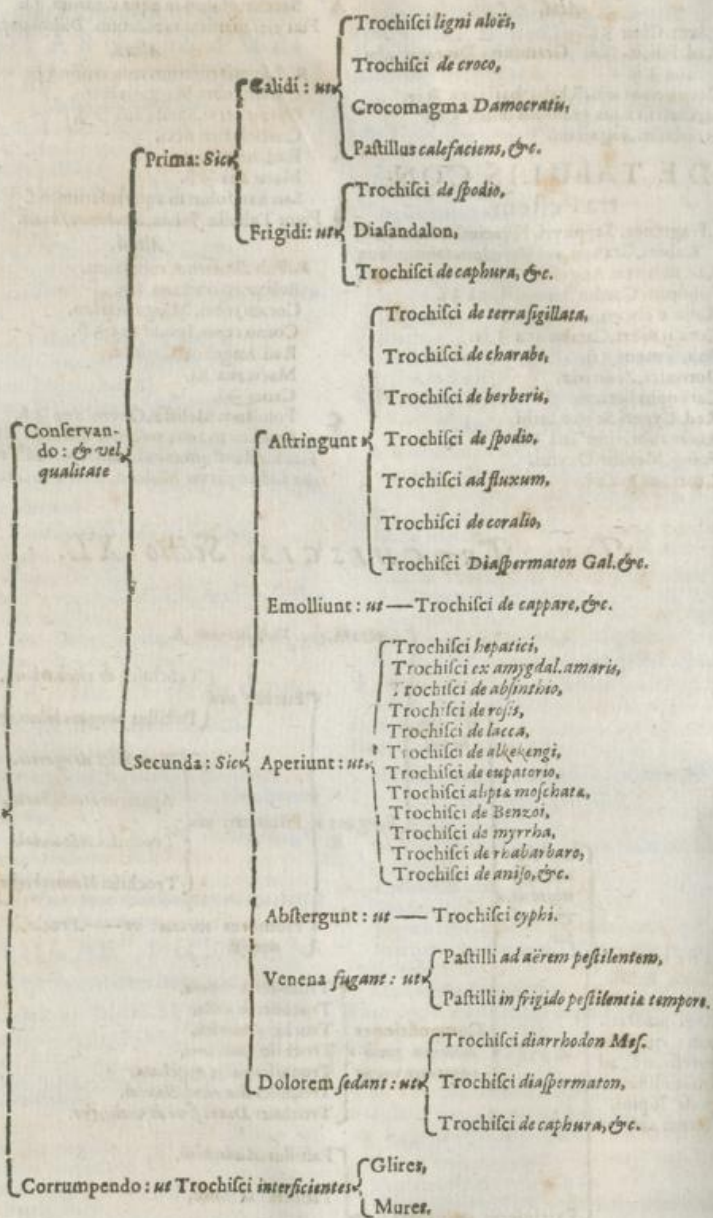 Trochiſci ligni aloës,
Trochiſci de croco,
Calidi: ut
Crocomagma Damocratis,
Paſtillus calefaciens, &c.
Prima: Sic
Trochiſci de ſpodio,
Frigidi: ut
Diaſandalon,
Trochiſci de caphura, &c.
Conſervan-
do: & vel
qualitate
Trochiſci de terra ſigillata,
Trochiſci de charabe,
Trochiſci de berberis,
Aſtringunt
Trochiſci de ſpodio,
Trochiſci ad fluxum,
Trochiſci de coralio,
Trochiſci Diaſpermaton Gal. &c.
Emolliunt: ut — Trochiſci de cappare, &c.
Trochiſci hepatici,
Trochiſci ex amygdal. amaris,
Trochiſci de abſinthio,
Trochiſci de roſis,
Trochiſci de lacca,
Secunda: Sic
Aperiunt: ut
Trochiſci de alkekengi,
Trochiſci de eupatorio,
Trochiſci alipta moſchata,
Trochiſci de Benzoi,
Trochiſci de myrrha,
Trochiſci de rhabarbaro,
Trochiſci de aniſo, &c.
Abſtergunt: ut — Trochiſci cyphi.
Venena fugant: ut
Paſtilli ad aërem peſtilentem,
Paſtilli in frigido peſtilentia tempore.
Trochiſci diarrhodon Meſ.
Dolorem ſedant: ut
Trochiſci diaſpermaton,
Trochiſci de caphura, &c.
Corrumpendo: ut Trochiſci interficientes
Glires,
Mures.